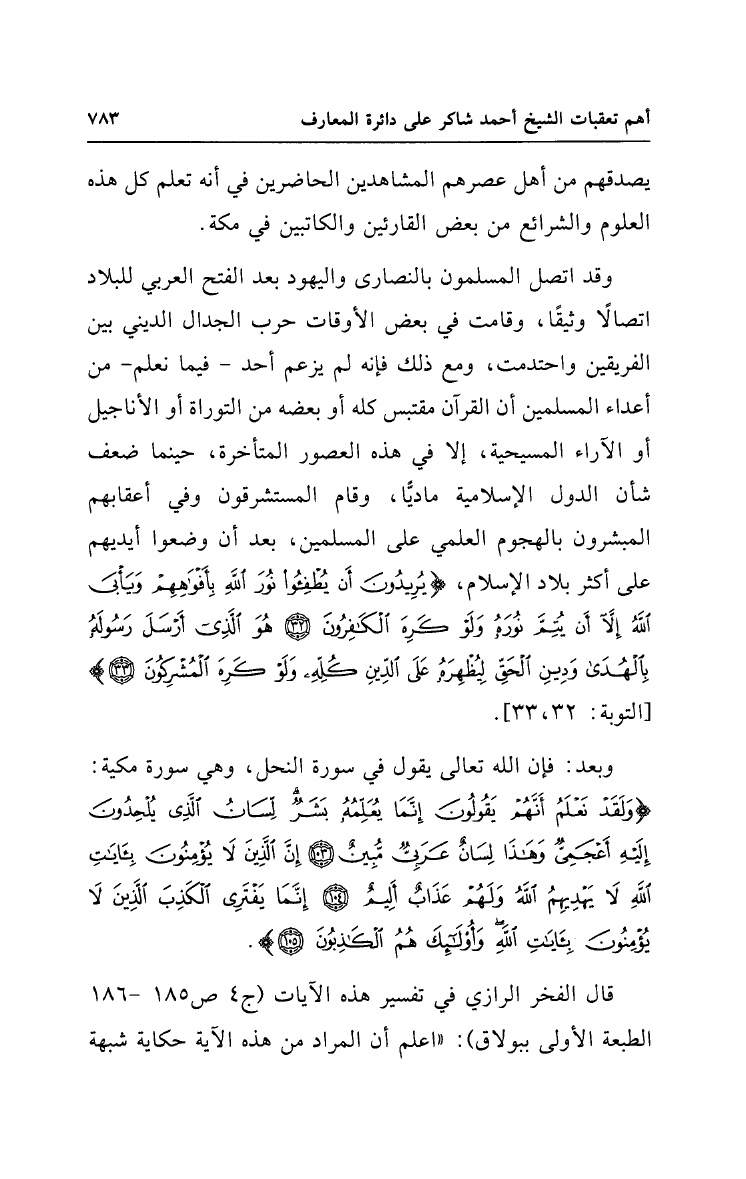 أهم تعقبات الشيخ أحمد شاكر على دائرة المعارف ٧٨٣
يصدقهم من أهل عصرهم المشاهدين الحاضرين في أنه تعلم كل هذه
العلوم والشرائع من بعض القارئين والكاتبين في مكة.
وقد اتصل المسلمون بالنصارى واليهود بعد الفتح العربي للبلاد
اتصالًا وثيقًا، وقامت في بعض الأوقات حرب الجدال الديني بين
الفريقين واحتدمت، ومع ذلك فإنه لم يزعم أحد - فيما نعلم- من
أعداء المسلمين أن القرآن مقتبس كله أو بعضه من التوراة أو الأناجيل
أو الآراء المسيحية، إلا في هذه العصور المتأخرة، حينما ضعف
شأن الدول الإسلامية ماديًّا، وقام المستشرقون وفي أعقابهم
المبشرون بالهجوم العلمي على المسلمين، بعد أن وضعوا أيديهم
على أكثر بلاد الإسلام، ﴿يُرِيدُونَ أَن يُطْفِـُٔوا۟ نُورَ ٱللَّهِ بِأَفْوَٰهِهِمْ وَيَأْبَى
ٱللَّهُ إِلَّآ أَن يُتِمَّ نُورَهُۥ وَلَوْ كَرِهَ ٱلْكَـٰفِرُونَ ۝٣٢ هُوَ ٱلَّذِىٓ أَرْسَلَ رَسُولَهُۥ
بِٱلْهُدَىٰ وَدِينِ ٱلْحَقِّ لِيُظْهِرَهُۥ عَلَى ٱلدِّينِ كُلِّهِۦ وَلَوْ كَرِهَ ٱلْمُشْرِكُونَ ۝٣٣﴾
[التوبة: ٣٢، ٣٣].
وبعد: فإن الله تعالى يقول في سورة النحل، وهي سورة مكية:
﴿وَلَقَدْ نَعْلَمُ أَنَّهُمْ يَقُولُونَ إِنَّمَا يُعَلِّمُهُۥ بَشَرٌ ۗ لِّسَانُ ٱلَّذِى يُلْحِدُونَ
إِلَيْهِ أَعْجَمِىٌّ وَهَـٰذَا لِسَانٌ عَرَبِىٌّ مُّبِينٌ ۝١٠٣ إِنَّ ٱلَّذِينَ لَا يُؤْمِنُونَ بِـَٔايَـٰتِ
ٱللَّهِ لَا يَهْدِيهِمُ ٱللَّهُ وَلَهُمْ عَذَابٌ أَلِيمٌ ۝١٠٤ إِنَّمَا يَفْتَرِى ٱلْكَذِبَ ٱلَّذِينَ لَا
يُؤْمِنُونَ بِـَٔايَـٰتِ ٱللَّهِ ۖ وَأُو۟لَـٰٓئِكَ هُمُ ٱلْكَـٰذِبُونَ ۝١٠٥﴾.
قال الفخر الرازي في تفسير هذه الآيات (ج٤ ص١٨٥ -١٨٦
الطبعة الأولى ببولاق): «اعلم أن المراد من هذه الآية حكاية شبهة